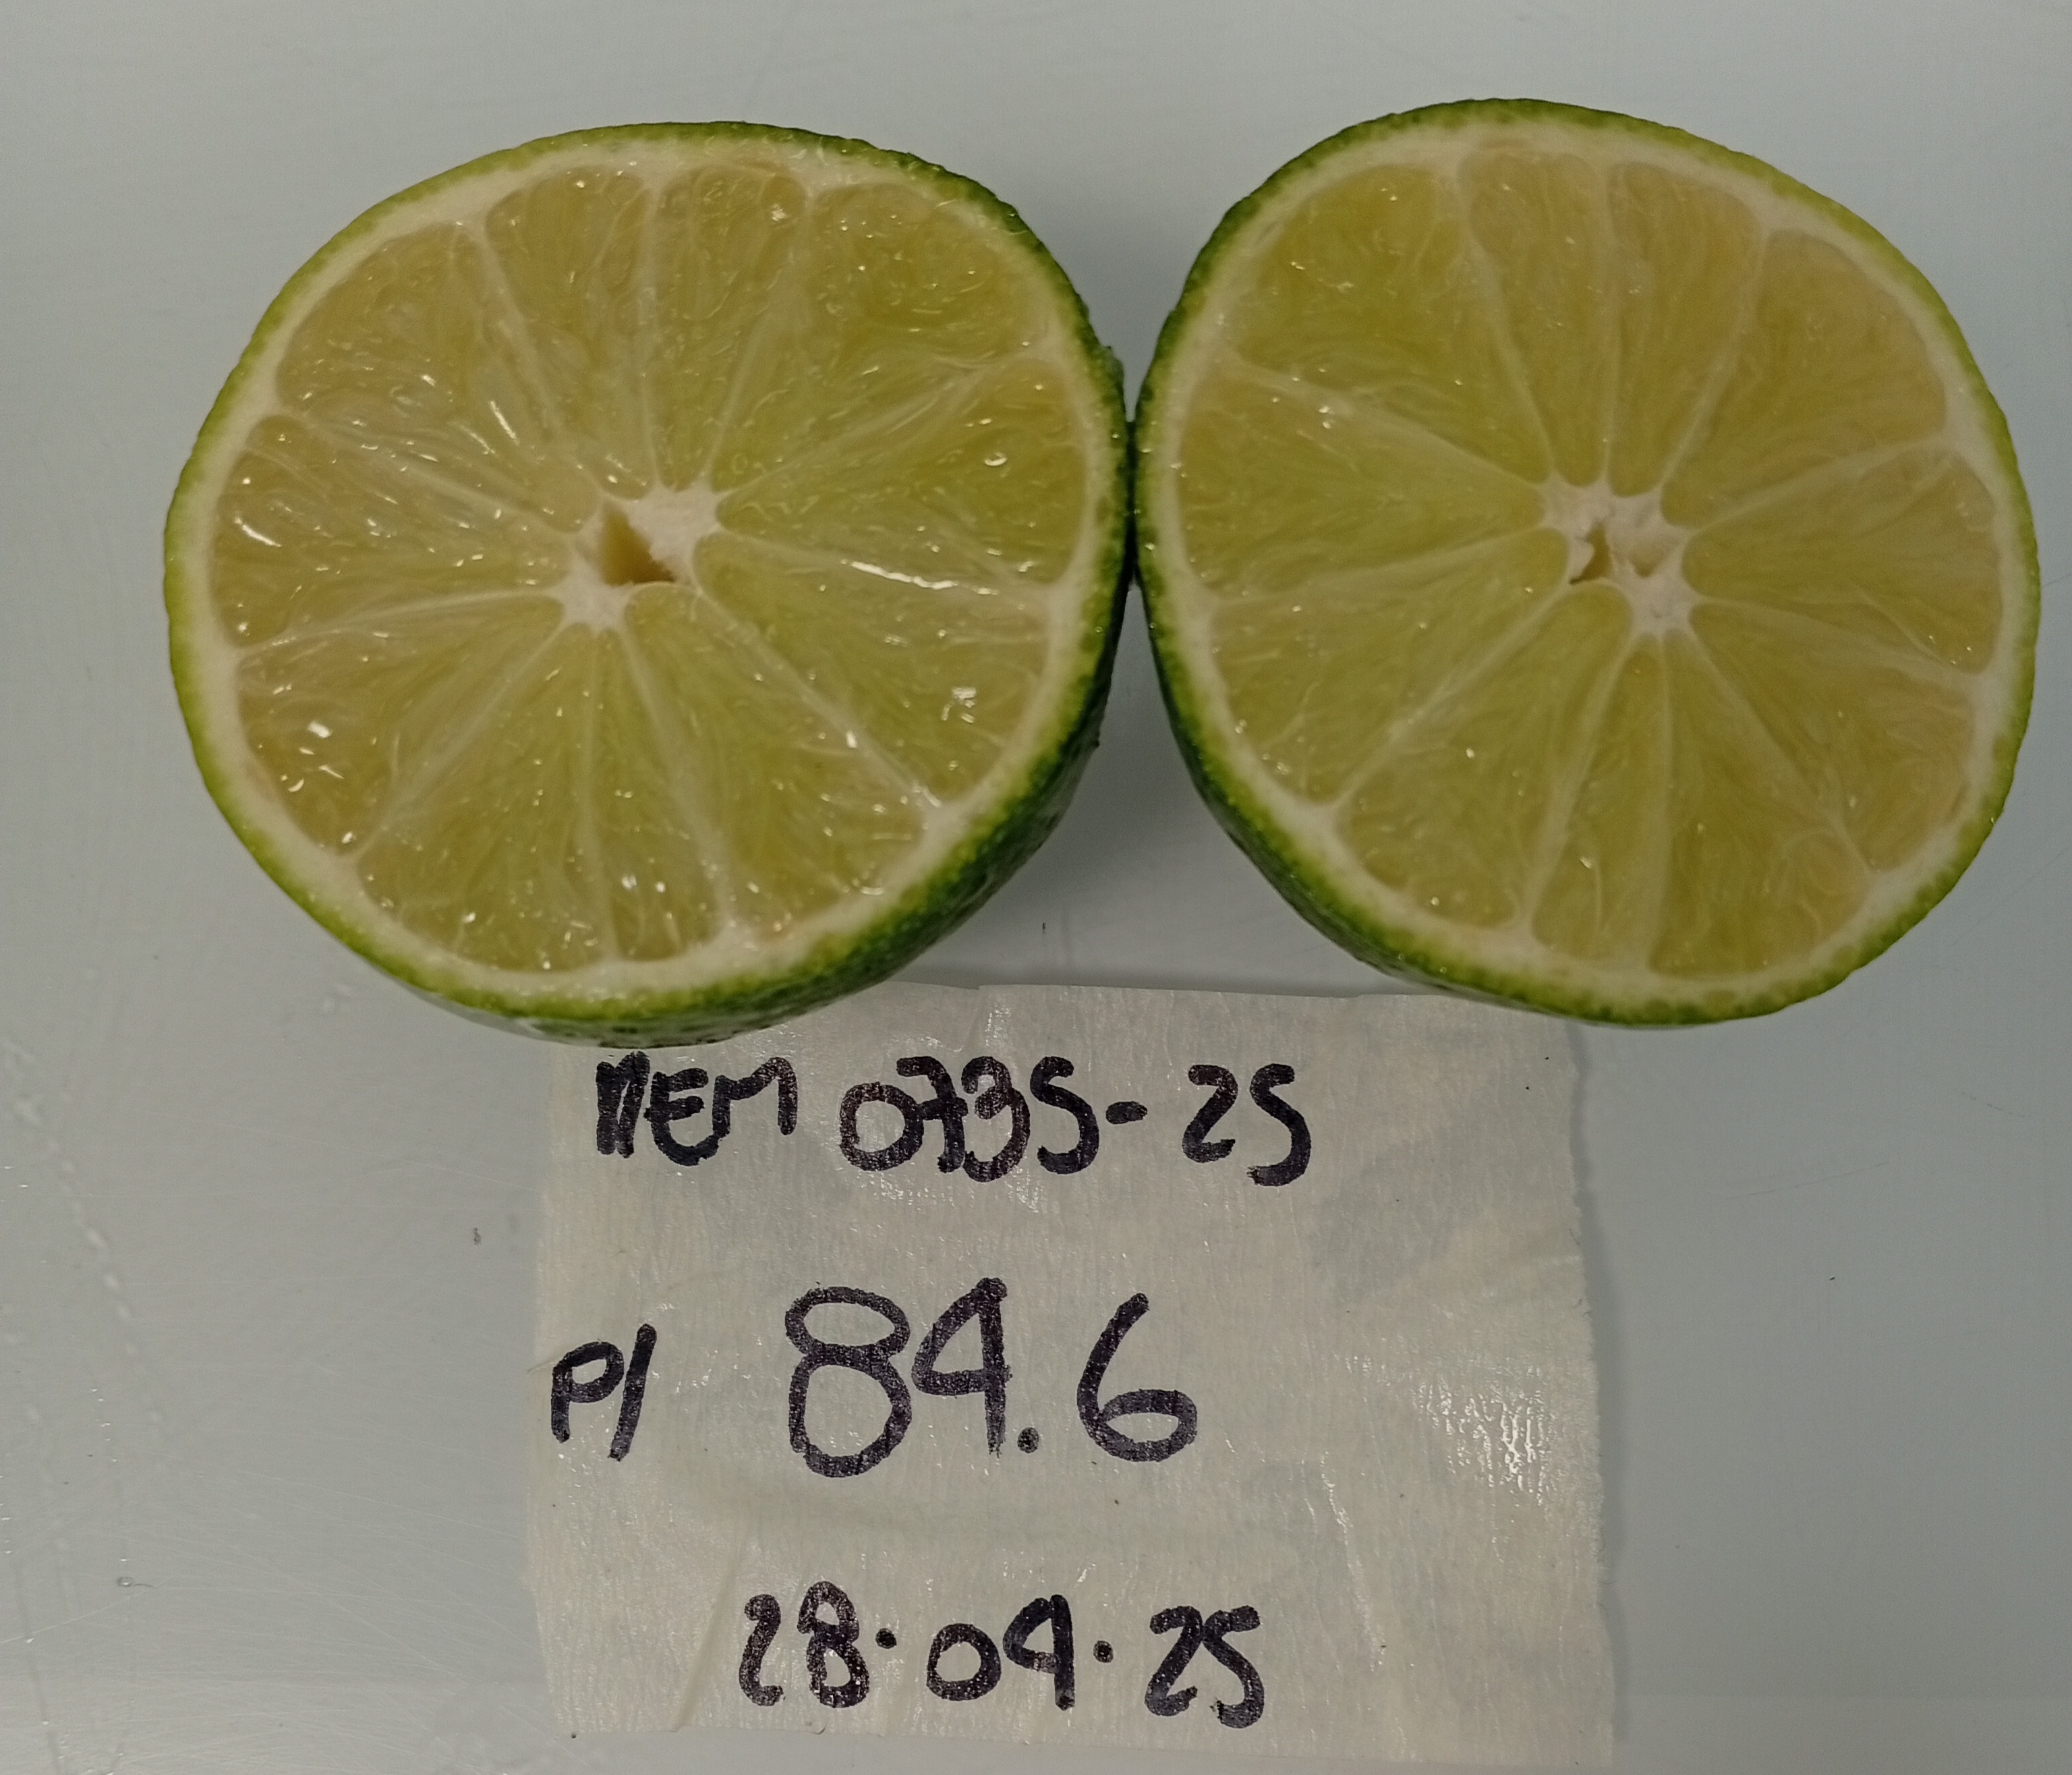 MEM 0735-25
P/ 84.6
28.04.25